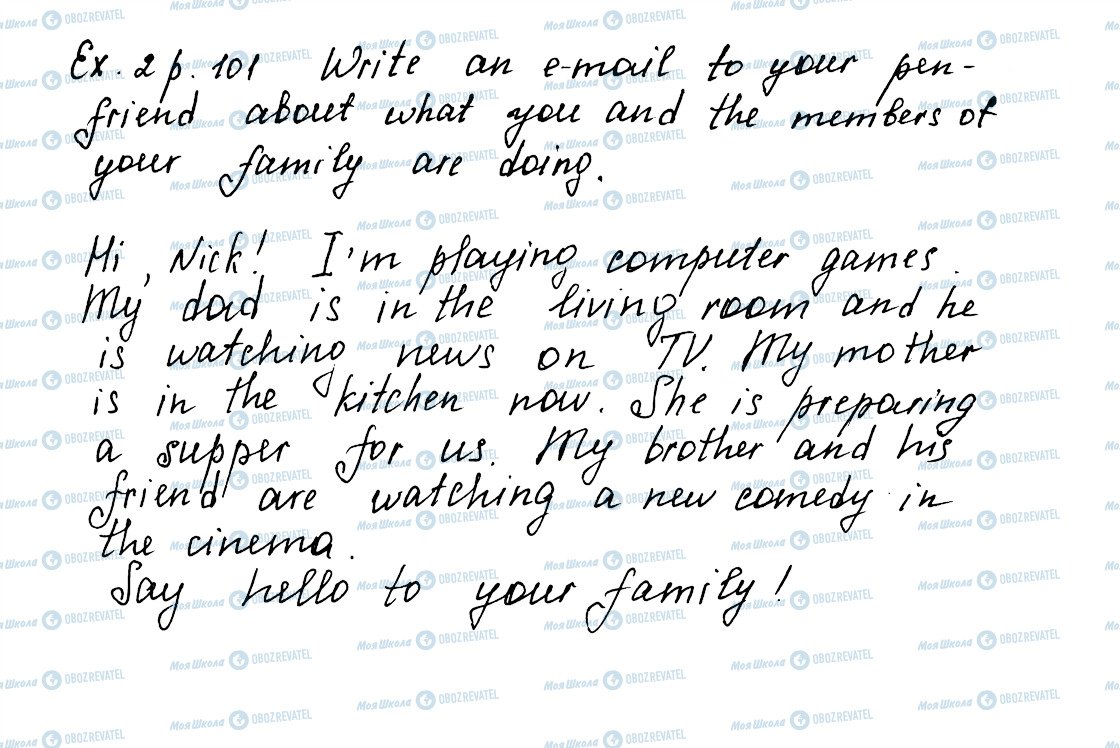 Ex. 2 p. 101 Write an e-mail to your pen-
friend about what you and the members of
your family are doing.
Hi, Nick! I'm playing computer games.
My dad is in the living room and he
is watching news on TV. My mother
is in the kitchen now. She is preparing
a supper for us. My brother and his
friend are watching a new comedy in
the cinema.
Say hello to your family!